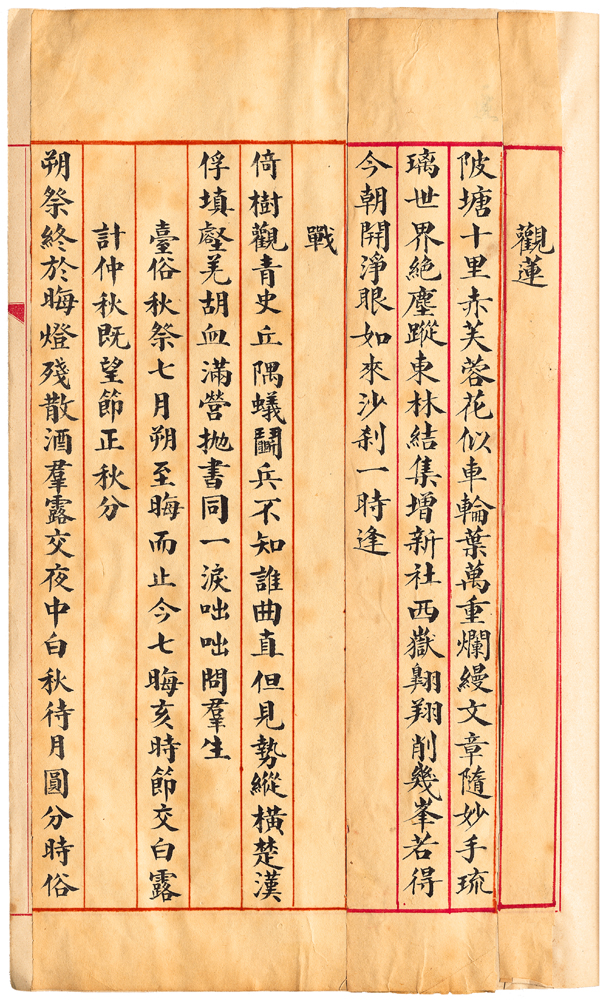 觀蓮
陂塘十里赤芙蓉花似車輪葉萬重爛縵文章隨妙手琉
璃世界絕塵蹤東林結集增新社西嶽翺翔削幾峯若得
今朝開淨眼如來沙刹一時逢
戰
倚樹觀青史丘隅蟻鬭兵不知誰曲直但見勢縱橫楚漢
俘填壑羌胡血滿營拋書同一淚咄咄問羣生
臺俗秋祭七月朔至晦而止今七晦亥時節交白露
計仲秋既望節正秋分
朔祭終於晦燈殘散酒羣露交夜中白秋待月圓分時俗